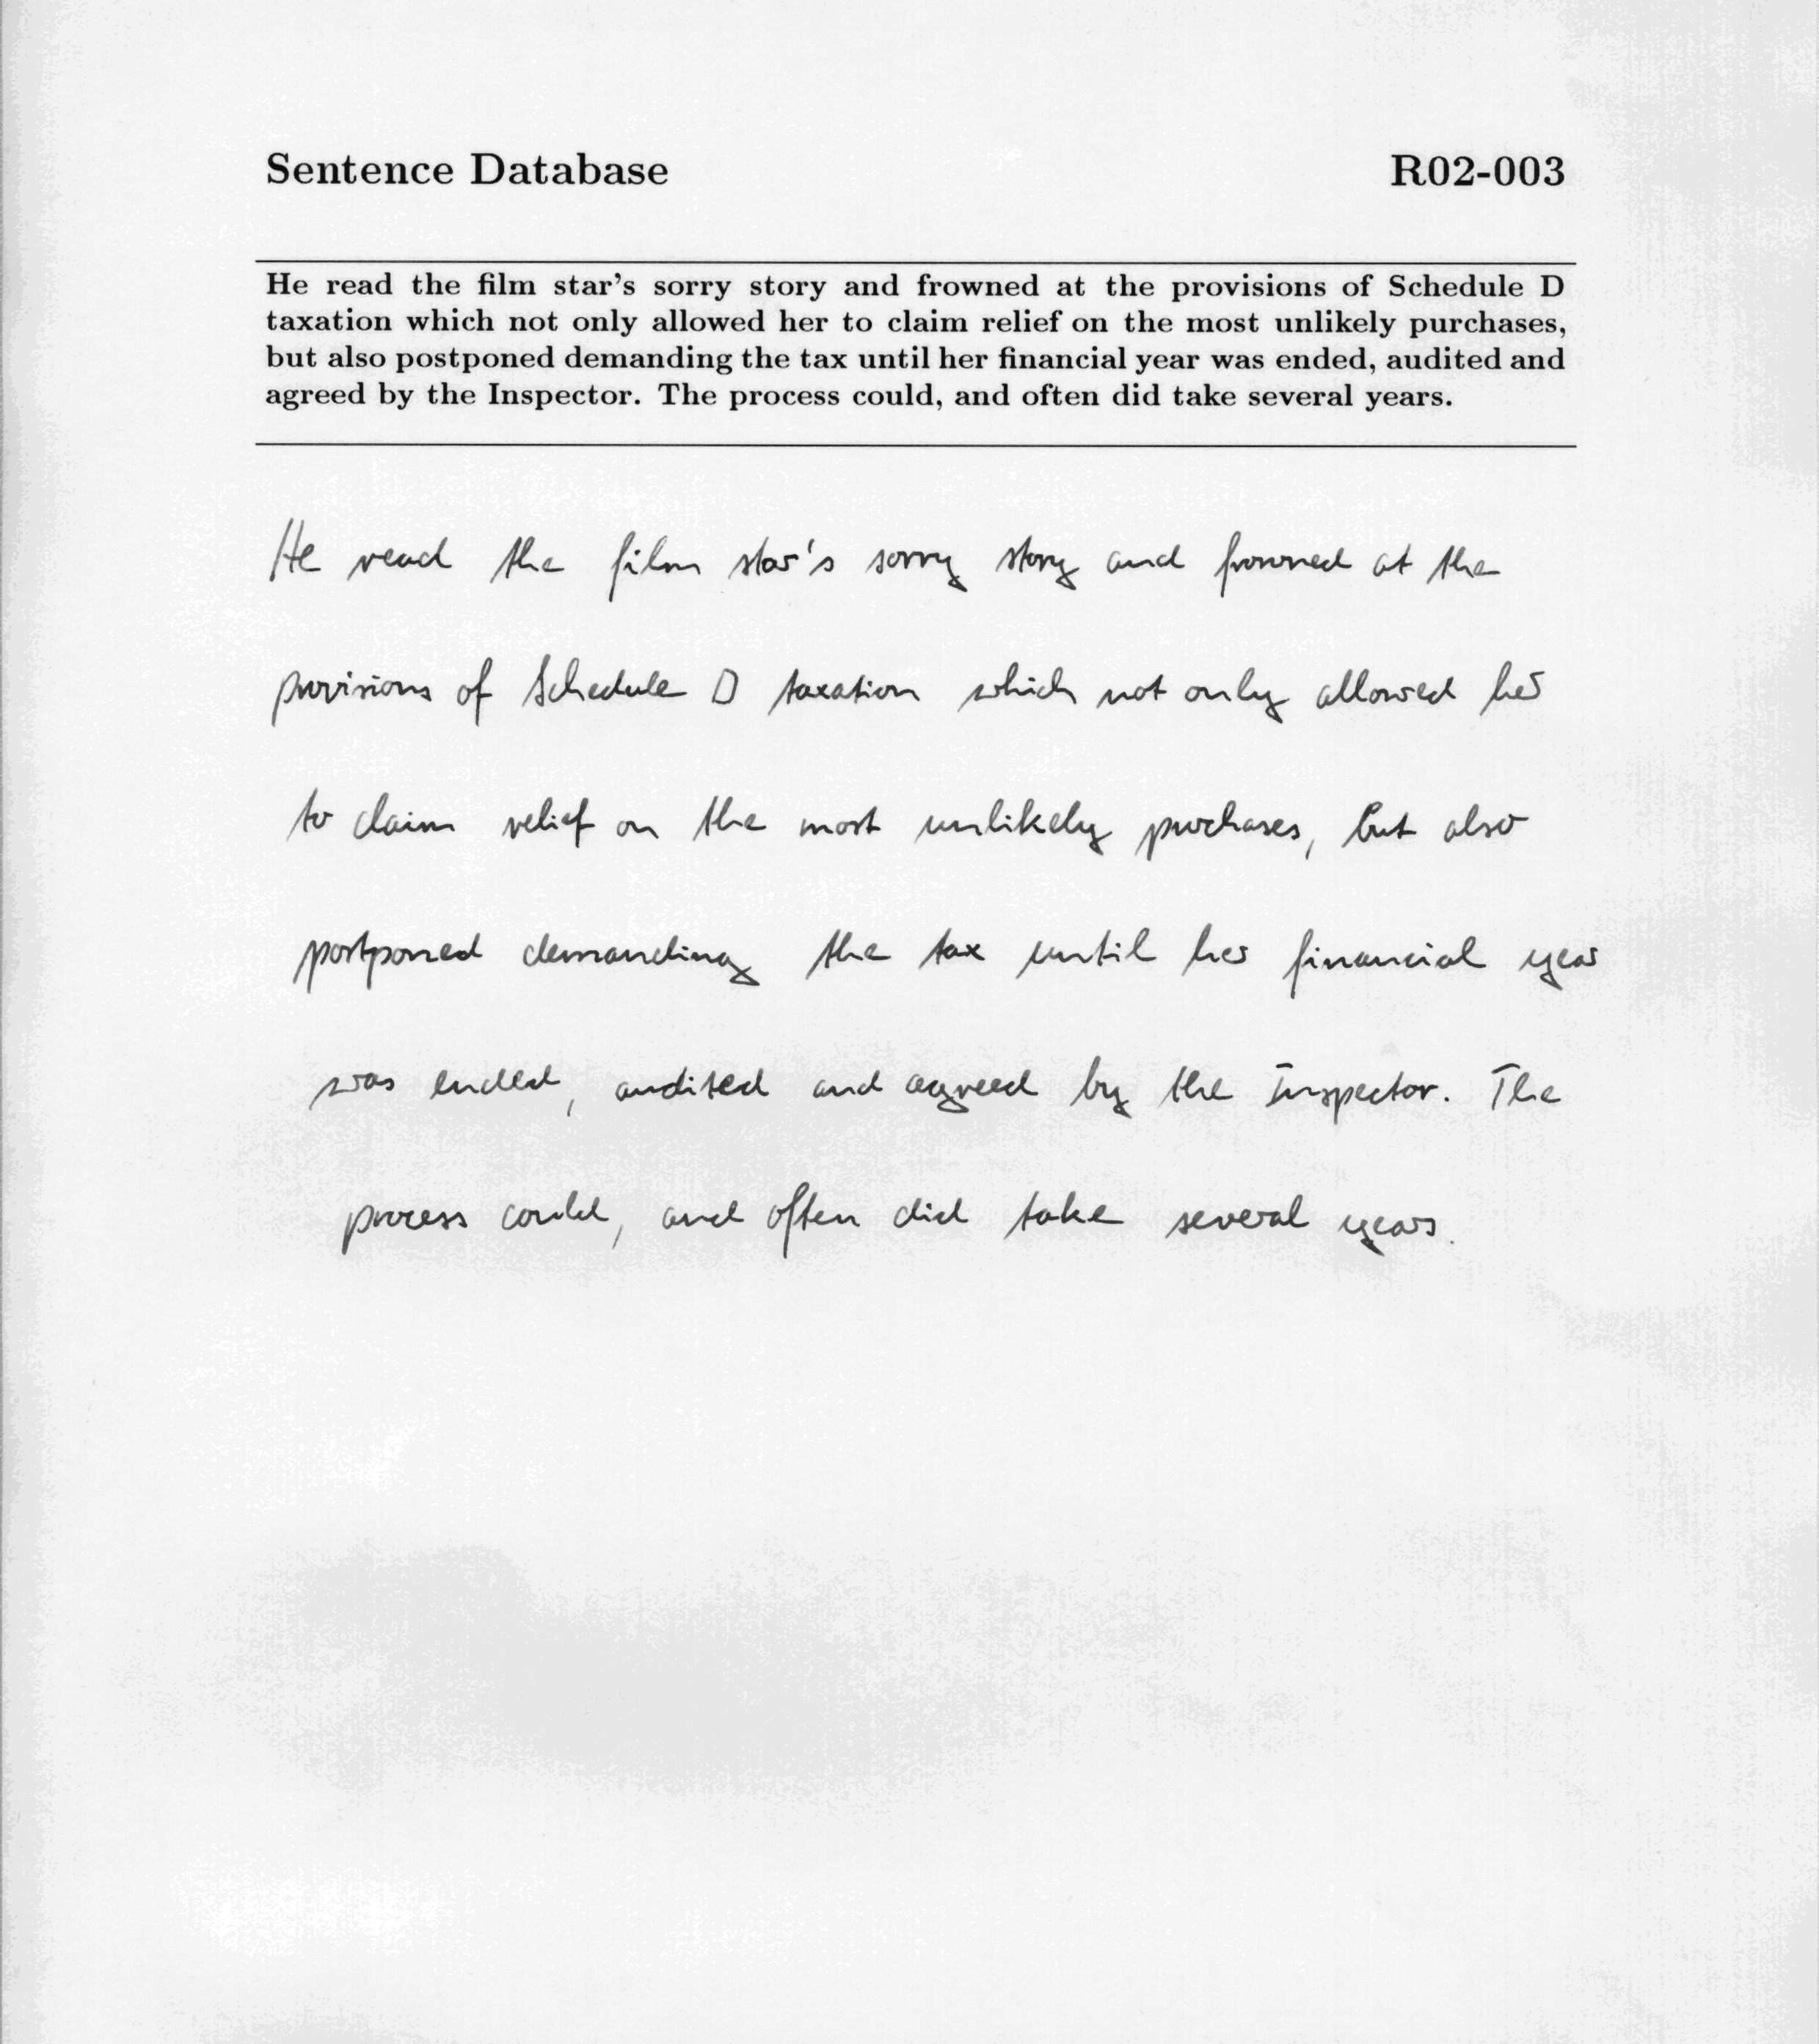 Sentence Database R02-003
He read the film star's sorry story and frowned at the provisions of Schedule D
taxation which not only allowed her to claim relief on the most unlikely purchases,
but also postponed demanding the tax until her financial year was ended, audited and
agreed by the Inspector. The process could, and often did take several years.
He read the film star's sorry story and frowned at the
provisions of Schedule D taxation which not only allowed her
to claim relief on the most unlikely purchases, but also
postponed demanding the tax until her financial year
was ended, audited and agreed by the Inspector. The
process could, and often did take several years.